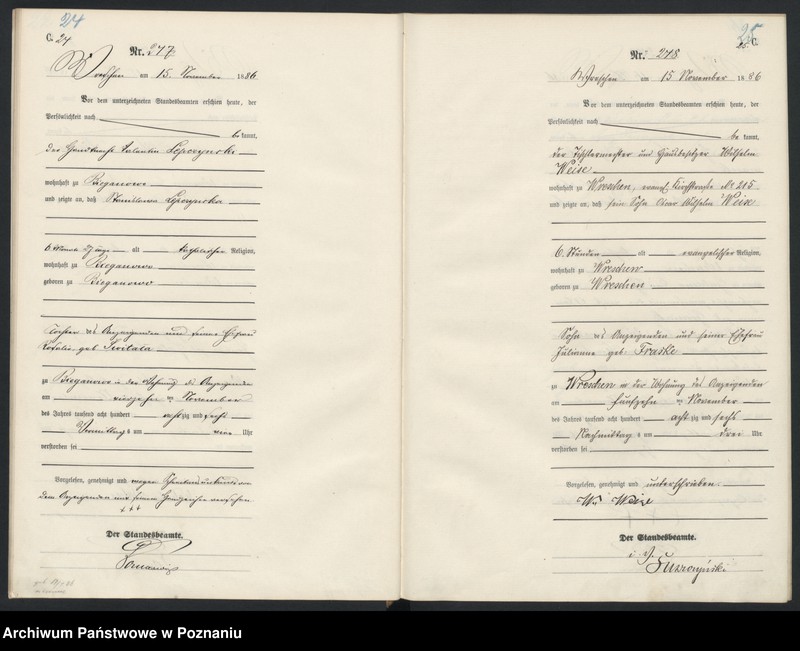 24
C. 24
Nr. 277.
Wreschen am 15. November 1886.
Vor dem unterzeichneten Standesbeamten erschien heute, der
Persönlichkeit nach
be kannt,
der Valentin
wohnhaft zu Bieganowo
und zeigte an, daß Stanislawa
alt katholischer Religion,
wohnhaft zu Bieganowo
geboren zu Bieganowo
Tochter des Anzeigenden und seiner Ehefrau
geb
zu Bieganowo in der Wohnung des Anzeigenden
am vierzehn ten November
des Jahres tausend acht hundert achtzig und sechs
Vormittags um vier Uhr
verstorben sei
Vorgelesen, genehmigt und wegen Schreibensunkunde von
dem Anzeigenden mit seinem Handzeichen versehen
+++
Der Standesbeamte.
25
25. C.
Nr. 278
Wreschen am 15 November 1886
Vor dem unterzeichneten Standesbeamten erschien heute, der
Persönlichkeit nach
be kannt,
der Tischlermeister und Hausbesitzer Wilhelm
Weise
wohnhaft zu Wreschen, evangl. Kirchstraße No 215
und zeigte an, daß sein Sohn Oscar Wilhelm Weise
6 Stunden alt evangelischer Religion,
wohnhaft zu Wreschen
geboren zu Wreschen
Sohn des Anzeigenden und seiner Ehefrau
Julianne geb Fraske
zu Wreschen in der Wohnung des Anzeigenden
am fünfzehn ten November
des Jahres tausend acht hundert achtzig und sechs
Nachmittag s um drei Uhr
verstorben sei
Vorgelesen, genehmigt und unterschrieben
Weise
Der Standesbeamte.
i. V.
Suszczyński
Archiwum Państwowe w Poznaniu